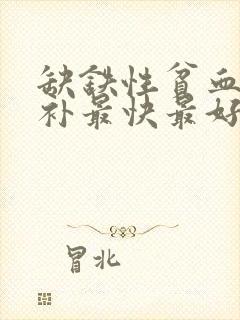 缺铁性贫血
补最快最好
冒北